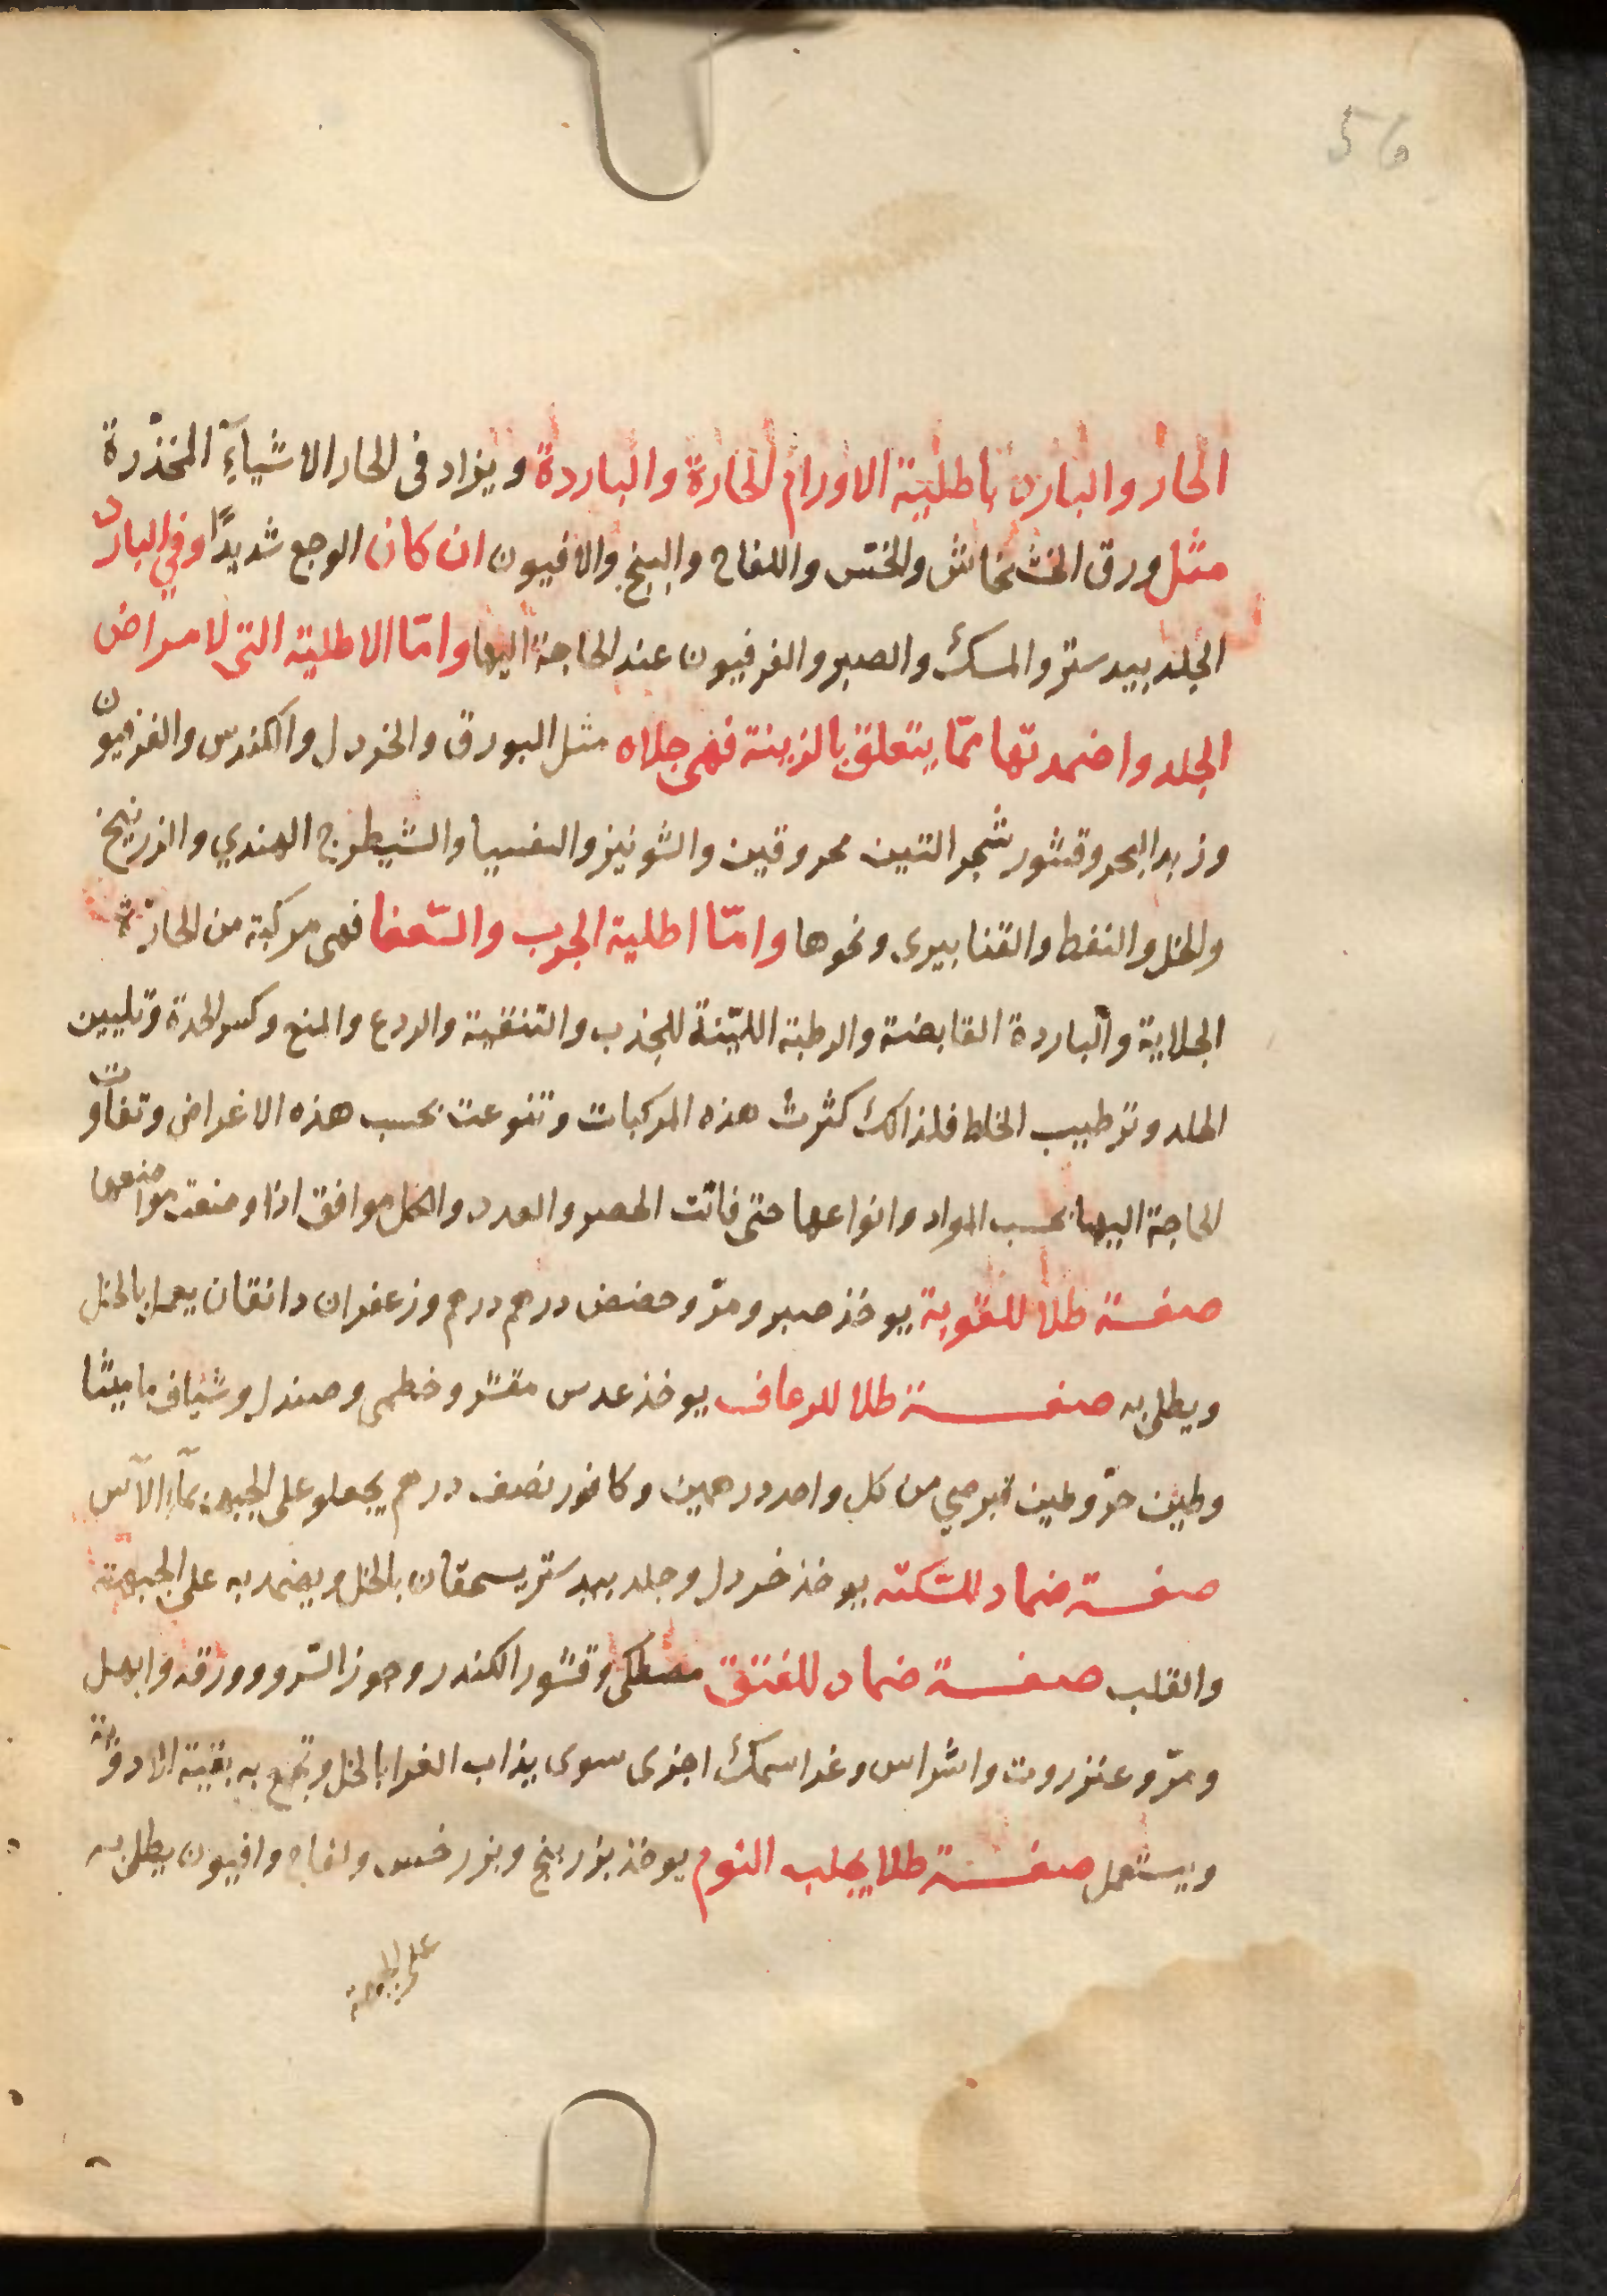 56
الحار والبارد باطلية الاورام الحارة والباردة ويزاد فى الحار الاشياءَ المخذّرة
مثل ورق الخشخاش والخسّ واللفاح والبنج والافيون ان كان الوجع شديدًا وفي البارد
الجلد بيدستر والمسك والصبر والفرفيون عند الحاجة اليها وامّا الاطلية التى لامراض
الجلد واضمدتها ممّا يتعلق بالزينة فهى جلاه مثل البورق والخردل والكندس والفرفيون
وزبد البحر وقشور شجر التين محروقين والشونيز والتفسيا والشيطرج الهندي والزرنيخ
والخل والنفط والقنا بيرى ونحوها وامّا اطلية الجرب والسّعفا فهى مركبة من الحارّة
الجلاية والباردة القابضة والرطبة الليّنة للجذب والتنقية والردع والمنع وكسر الحدة وتليين
الجلد وترطيب الخلط فلذالك كثرت هذه المركبات وتنوعت بحسب هذه الاغراض وتفاوت
الحاجة اليها بحسب المواد وانواعها حتى فاتت الحصر والعدد والكل موافق اذا وضعت مواضعها
صفـة طلا للقوبة يوخذ صبر ومرّ وحضض درهم درهم وزعفران دانقان يعمل بالخل
ويطلى به صفـة طلا للرعاف يوخذ عدس مقشر وخطمى وصندل وشياف ماميثا
وطين حرّ وطين قبرصي من كل واحد درهمين وكافور نصف درهم يجعلو على الجبهة بمآء الآس
صفـة ضماد للسّكتة يوخذ خردل وجلد بيدستر يسحقان بالخل ويضمد به على الجبهة
والقلب صفـة ضماد للفتق مصطكى وقشور الكندر وجوز السّرو وورقه وابهل
ومرّ وعنزروت واشراس وغرا سمك اجزى سوى يذاب الغرا بالخل وتجمع به بقية الادوية
ويستعمل صفـة طلا يجلب النوم يوخذ بزر بنج وبزر خس ولفاح وافيون يطلى به
على الجبهة